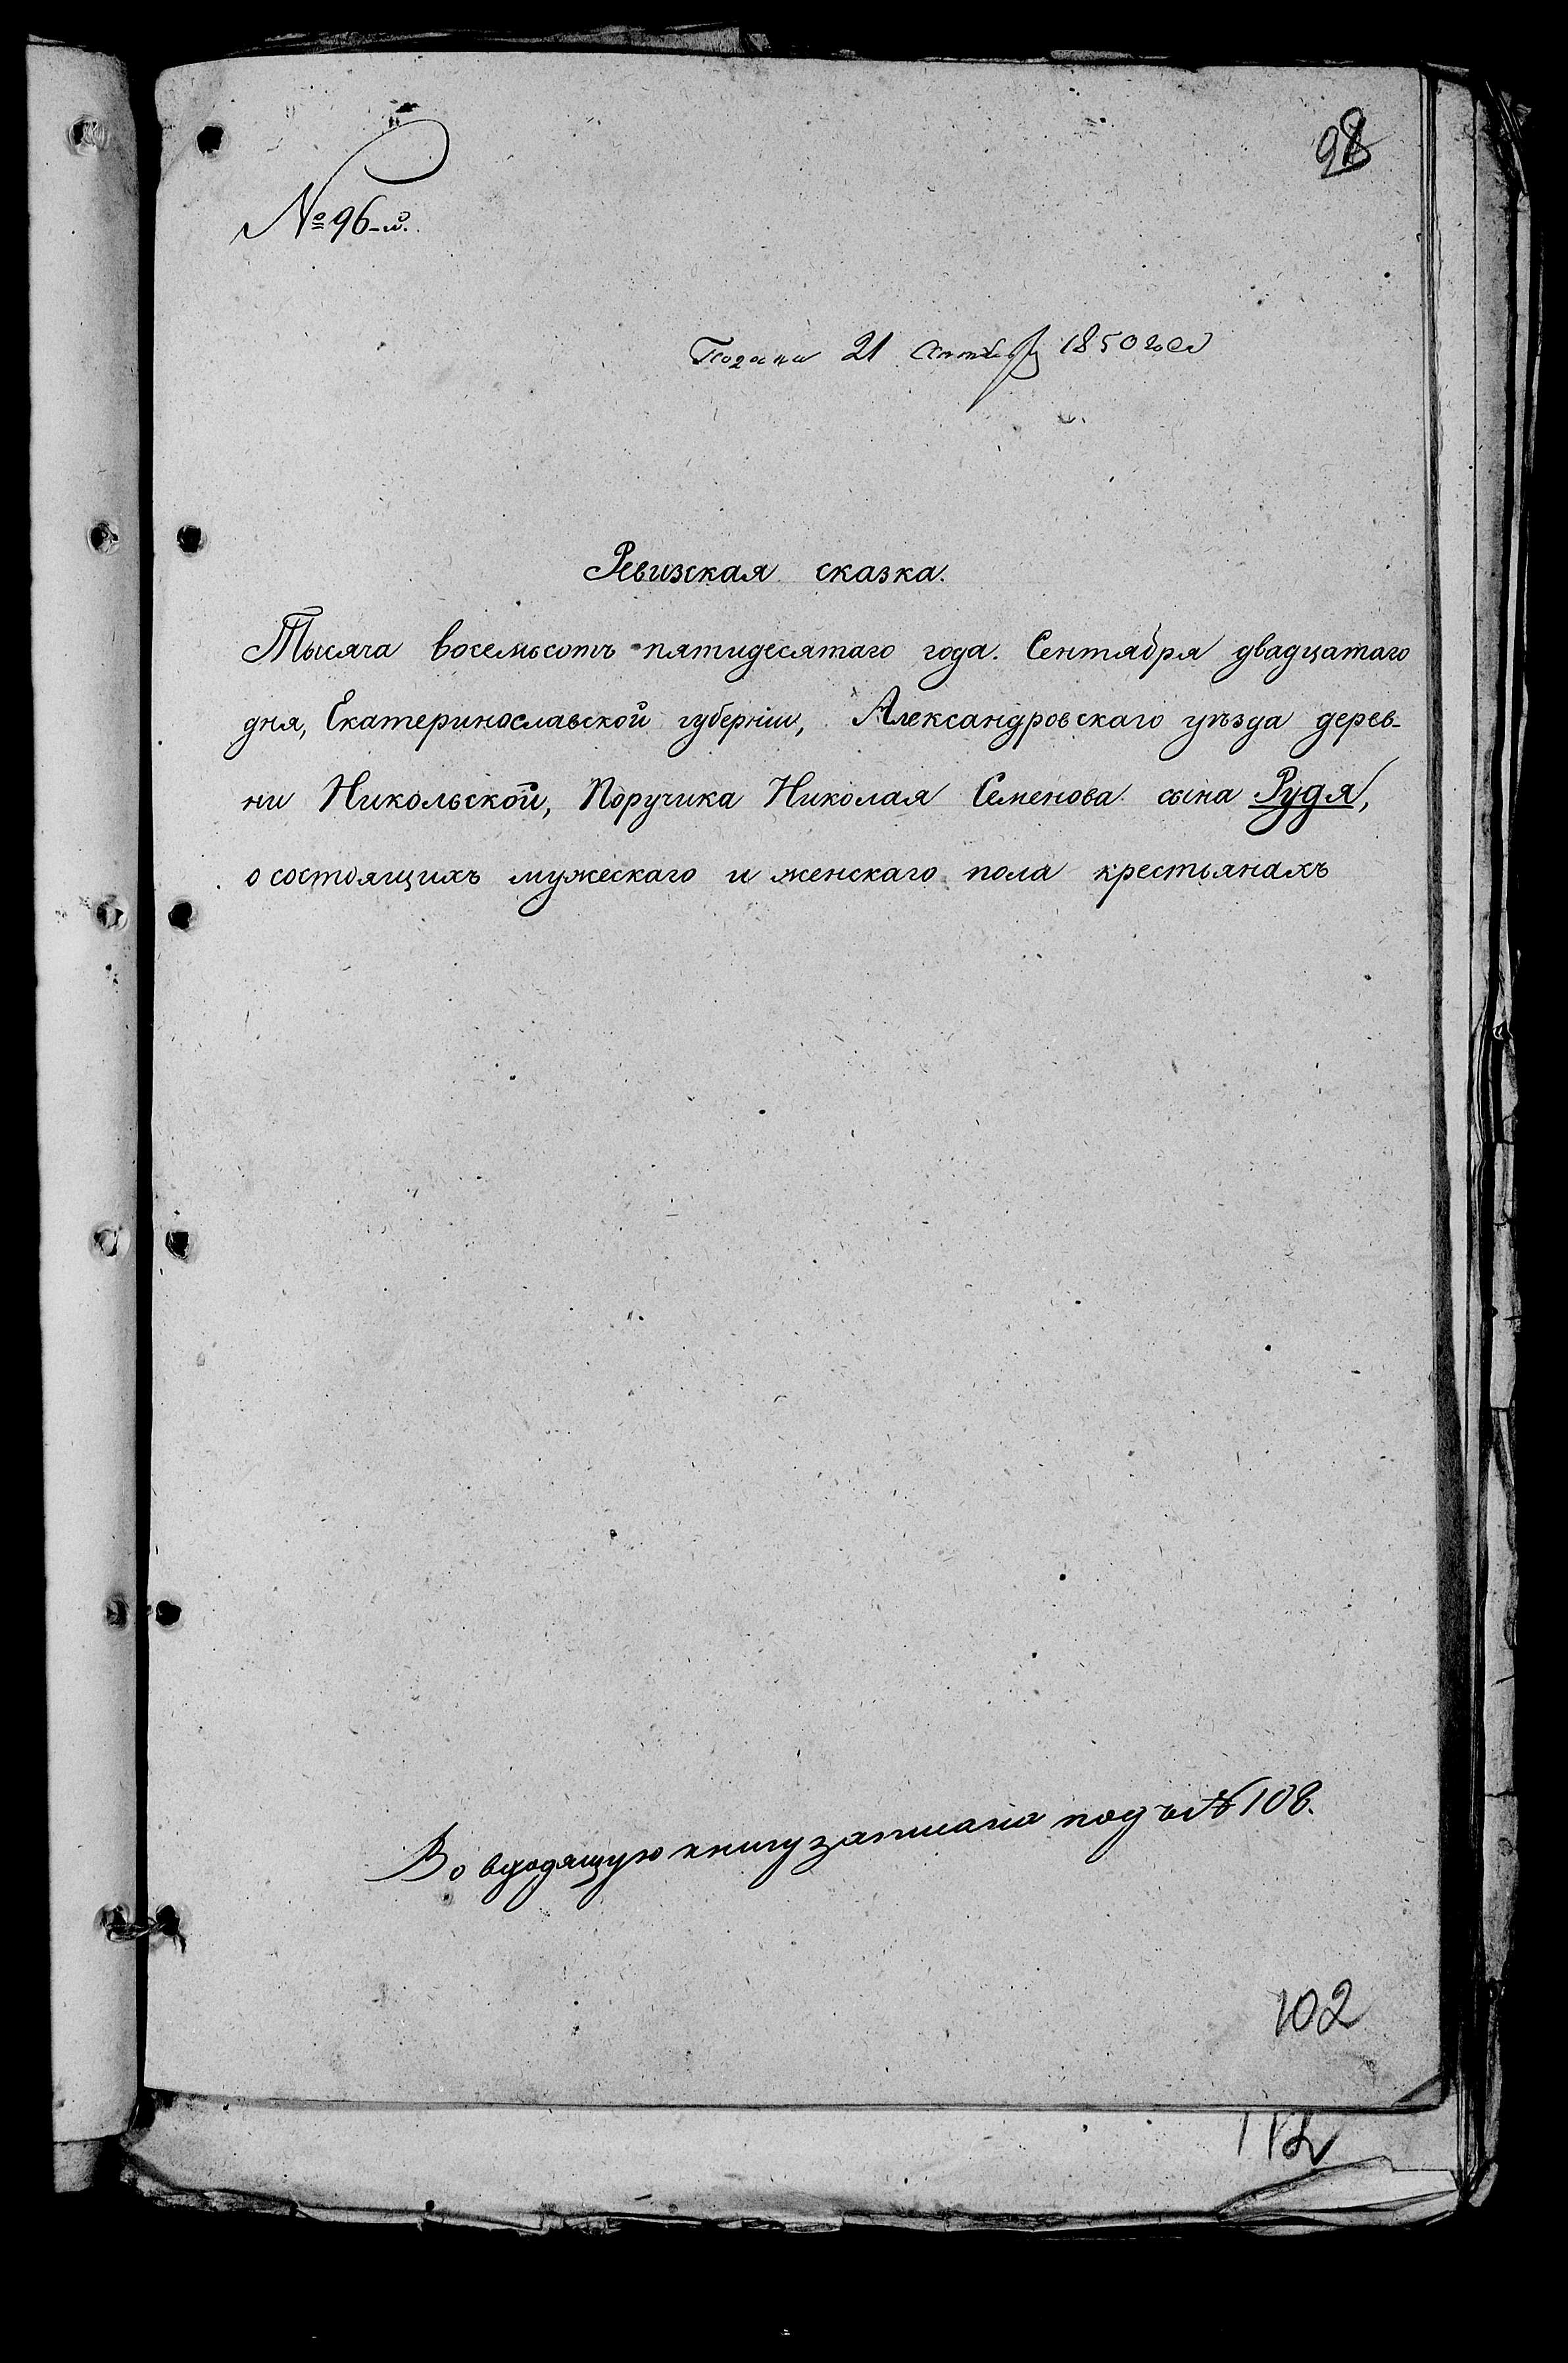 98
№ 96-й.
Подана 21 Сентября 1850 года
Ревизская сказка.
Тысяча восемьсотъ пятидесятаго года. Сентября двадцатаго
дня, Екатеринославской губерніи, Александровскаго уѣзда дерев-
ни Никольской, Поручика Николая Семенова сына Рудя,
о состоящихъ мужескаго и женскаго пола крестьянахъ
Во входящую книгу записана подъ № 108.
102
112